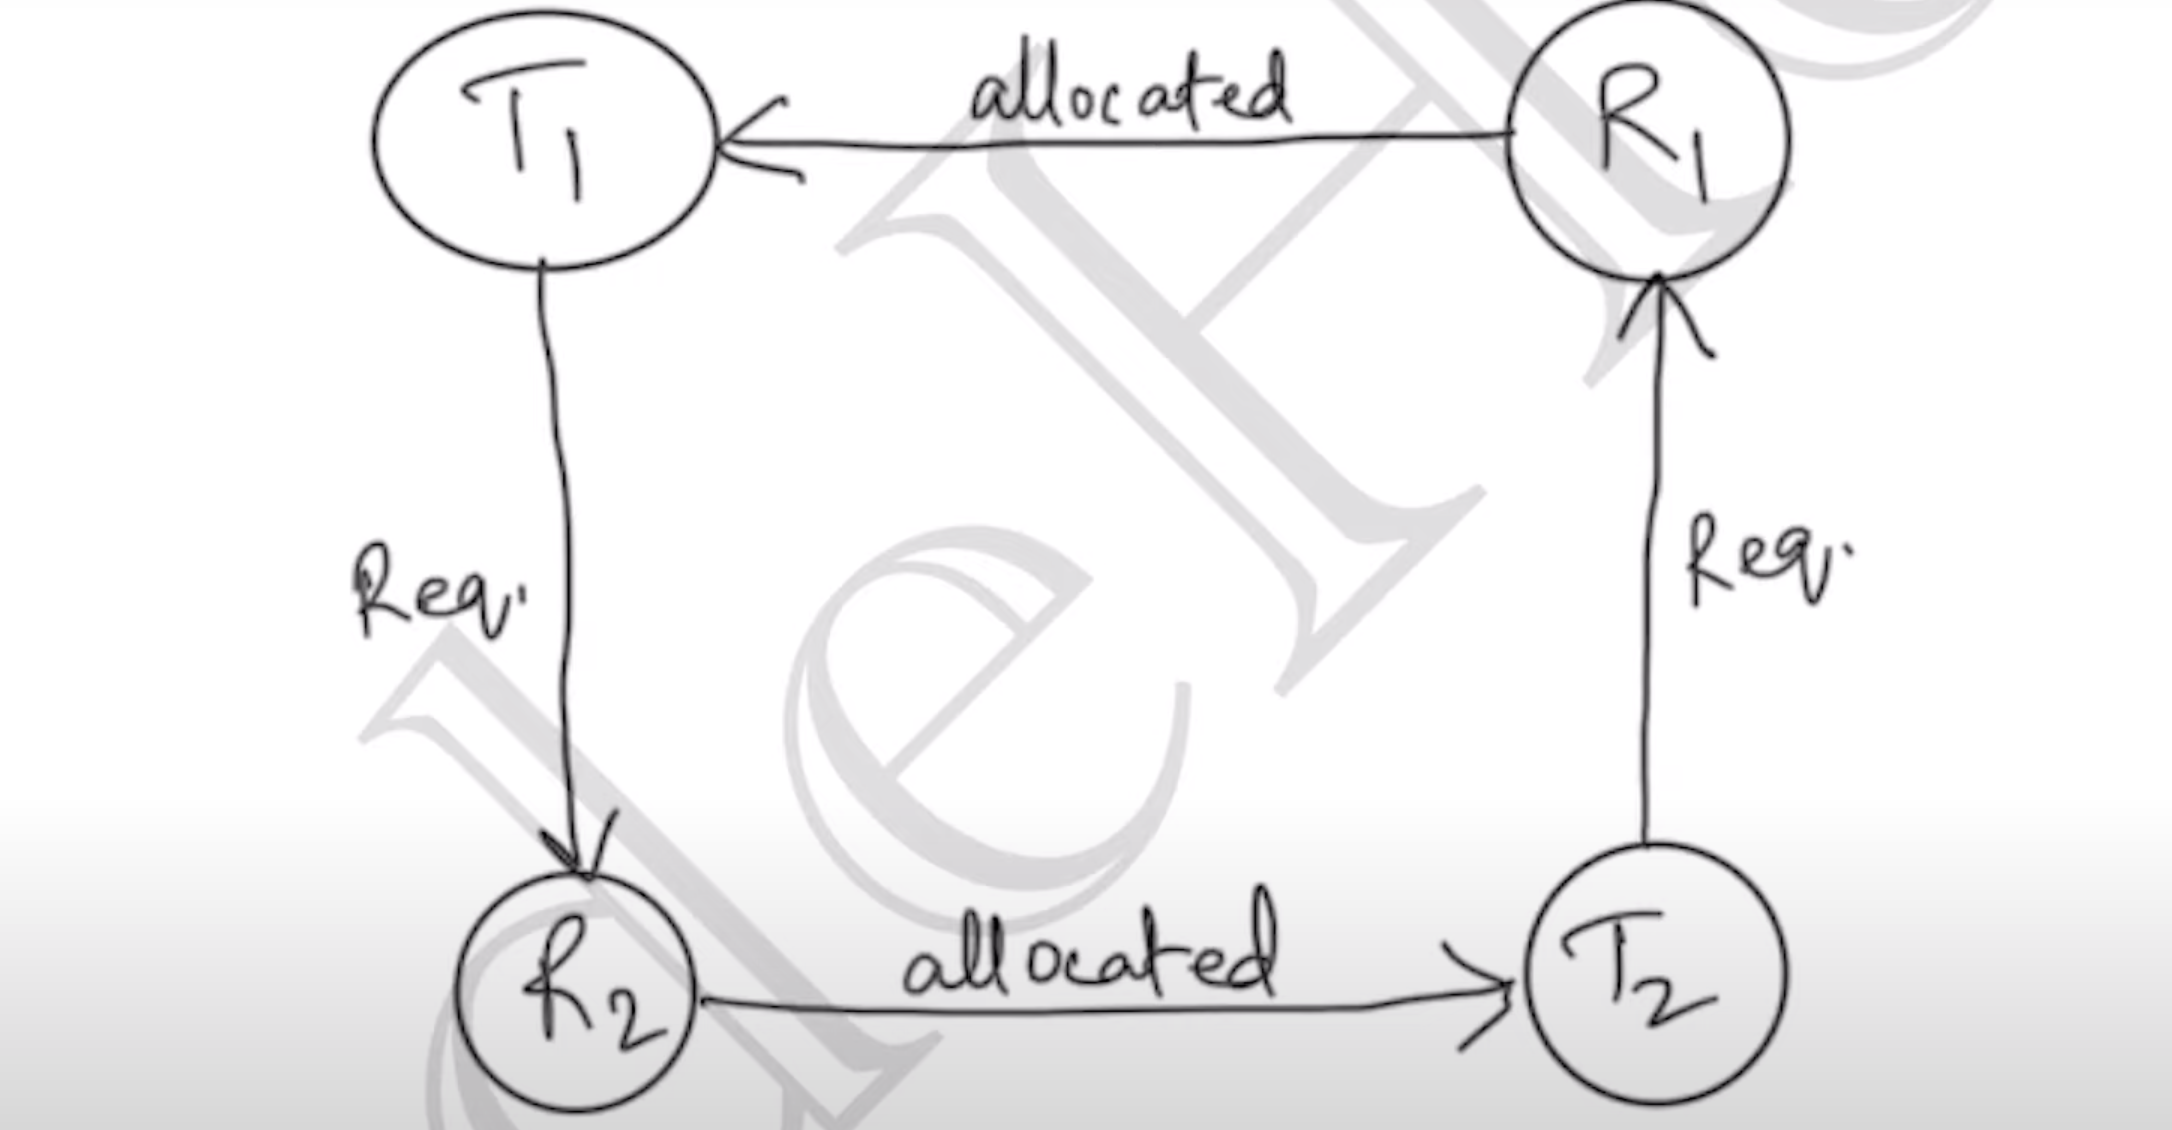 T1
allocated
R1
Req.
Req.
R2
allocated
T2